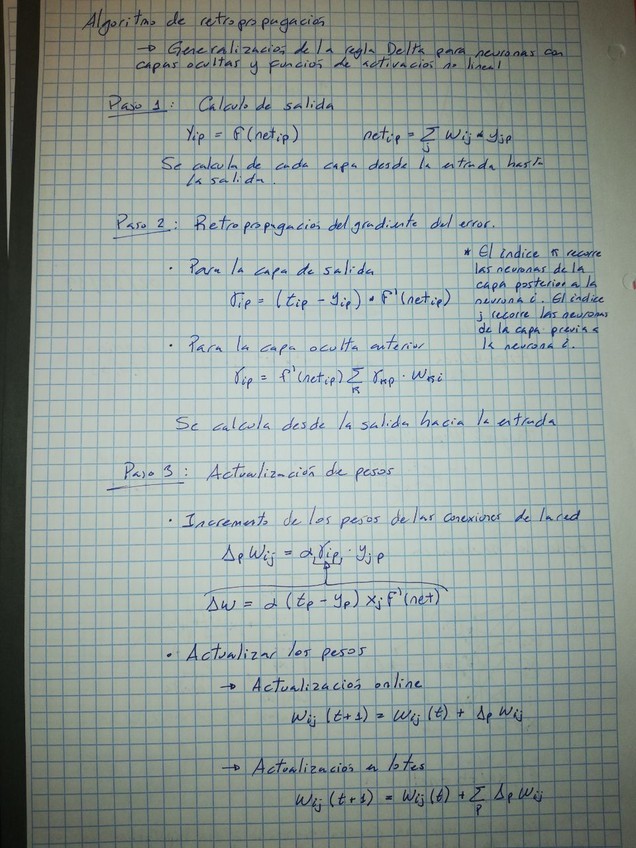 Algoritmo de retropropagación
→ Generalización de la regla Delta para neuronas con
capas ocultas y función de activación no lineal
Paso 1: Calculo de salida
yip = F(netip)    netip = ∑j wij * yjp
Se calcula de cada capa desde la entrada hasta
la salida.
Paso 2: Retropropagación del gradiente del error.
· Para la capa de salida
γip = (tip - yip) • F'(netip)
· Para la capa oculta anterior
γip = f'(netip) ∑k γkp · wki
* El índice k recorre
las neuronas de la
capa posterior a la
neurona i. El índice
j recorre las neuronas
de la capa previa a
la neurona i.
Se calcula desde la salida hacia la entrada
Paso 3: Actualización de pesos
· Incremento de los pesos de las conexiones de la red
Δp wij = α γip · yjp
Δw = α (tp - yp) xj F'(net)
· Actualizar los pesos
→ Actualización online
wij (t+1) = wij (t) + Δp wij
→ Actualización en lotes
wij (t+1) = wij (t) + ∑p Δp wij